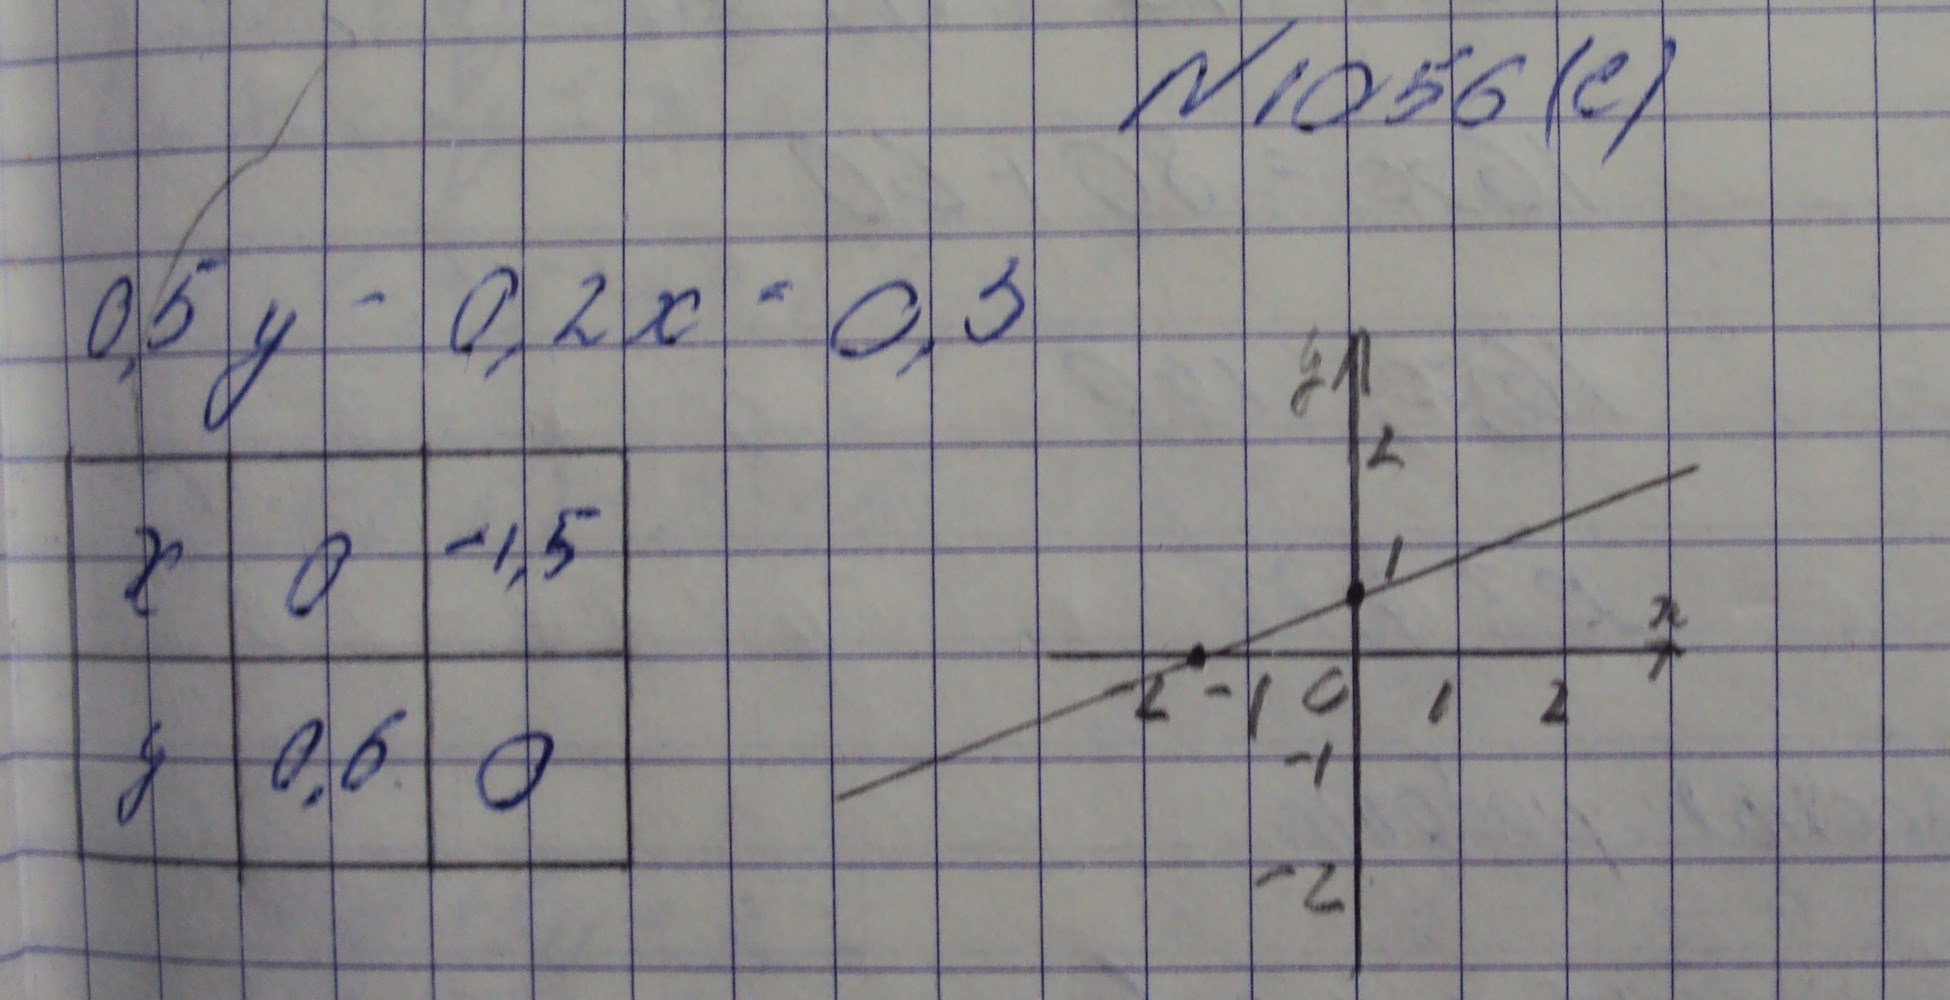 N1056(е)
0,5y - 0,2x = 0,3
x 0 -1,5
y 0,6 0
y
2
1
x
-2 -1 0 1 2
-1
-2